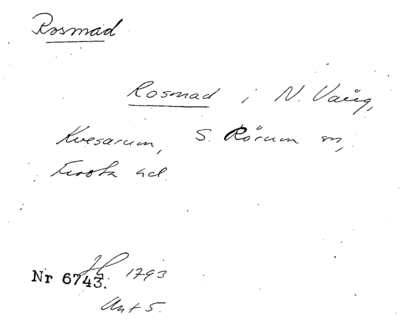 Rosmad
Rosmad i N. Vång,
Kvesarum, S. Rörum sn,
Frosta hd.
Nr 6743. 1793
Ant 5.